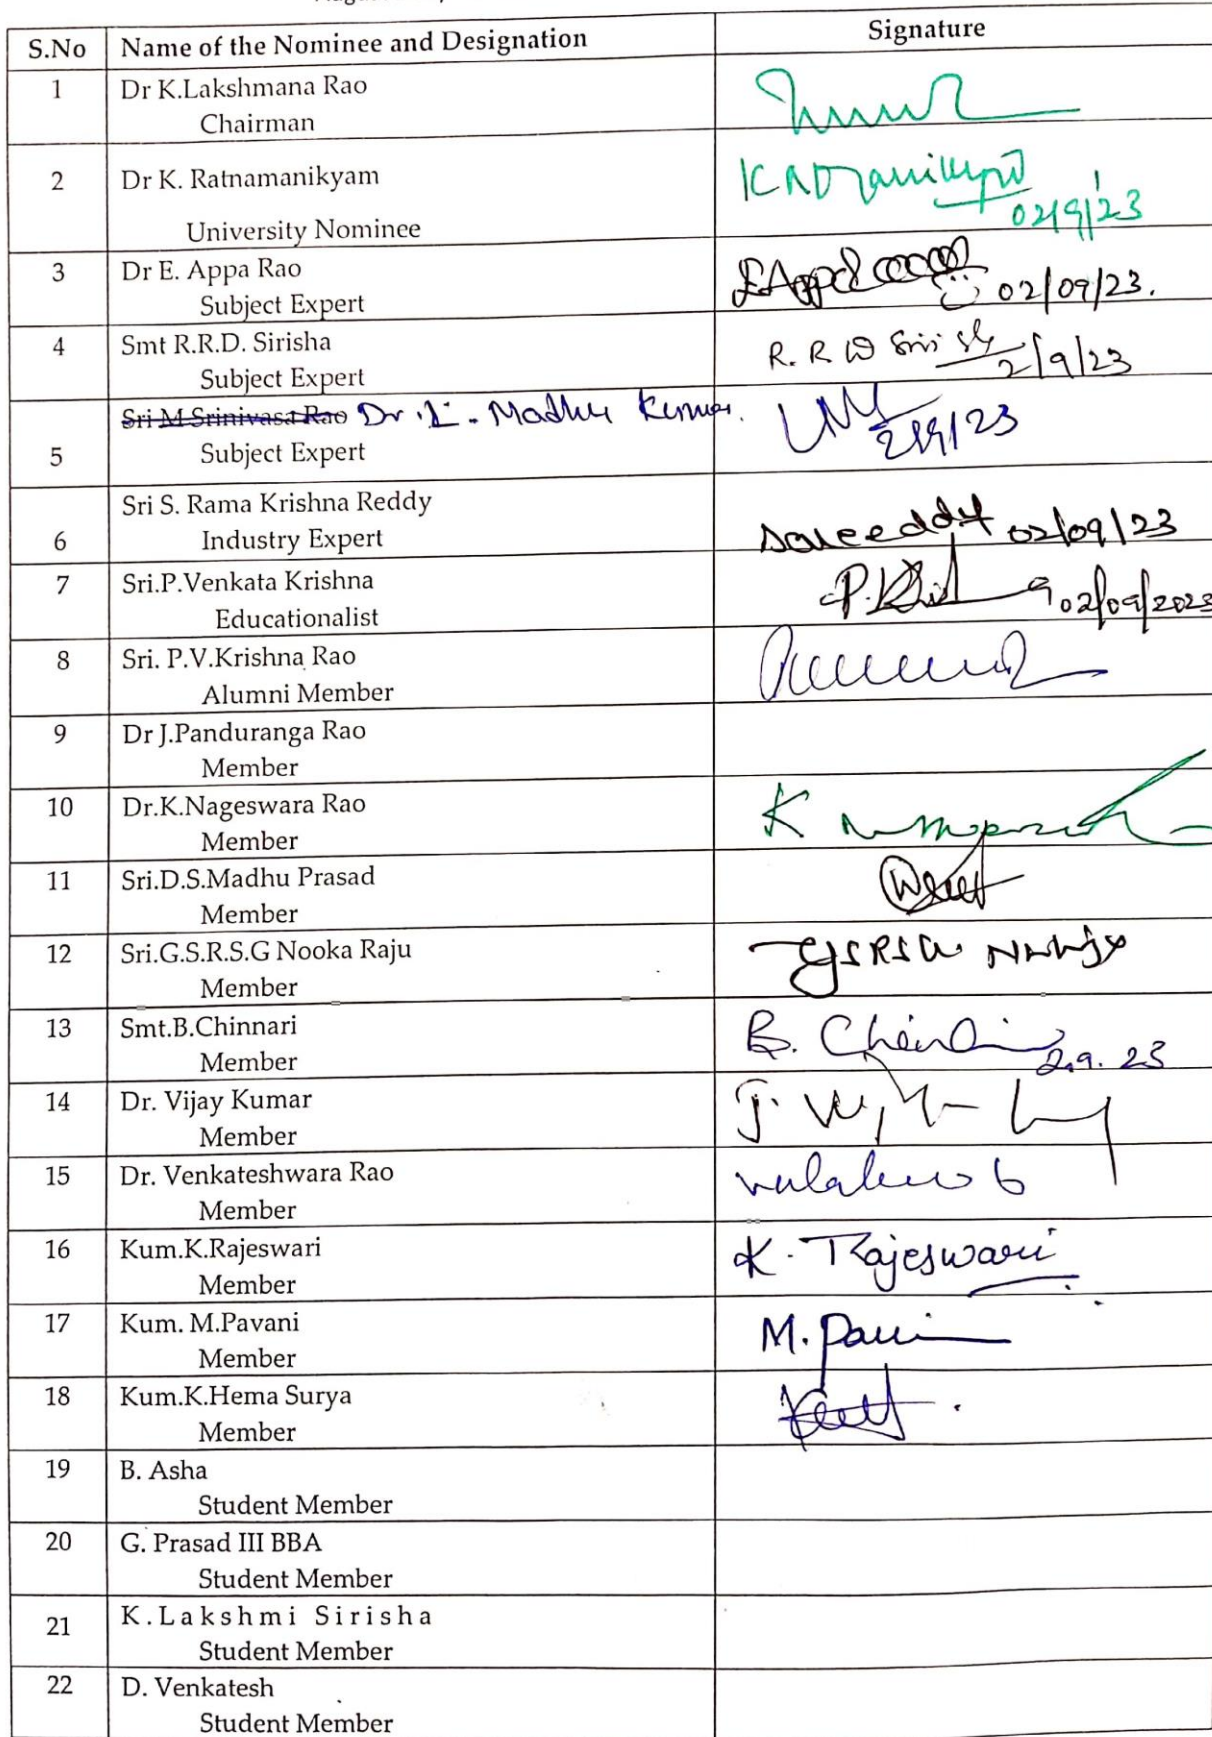 S.No Name of the Nominee and Designation Signature
1 Dr K.Lakshmana Rao
Chairman
2 Dr K. Ratnamanikyam
University Nominee
02/9/23
3 Dr E. Appa Rao
Subject Expert
02/09/23.
4 Smt R.R.D. Sirisha
Subject Expert
R. R D 2/9/23
Sri M Srinivasa Rao Dr. L. Madhu Kumar.
5 Subject Expert
2/9/23
Sri S. Rama Krishna Reddy
6 Industry Expert
02/09/23
7 Sri.P.Venkata Krishna
Educationalist
02/09/2023
8 Sri. P.V.Krishna Rao
Alumni Member
9 Dr J.Panduranga Rao
Member
10 Dr.K.Nageswara Rao
Member
K
11 Sri.D.S.Madhu Prasad
Member
12 Sri.G.S.R.S.G Nooka Raju
Member
GSRSG
13 Smt.B.Chinnari
Member
B. 2.9. 23
14 Dr. Vijay Kumar
Member
15 Dr. Venkateshwara Rao
Member
16 Kum.K.Rajeswari
Member
K. Rajeswari
17 Kum. M.Pavani
Member
M. Pavani
18 Kum.K.Hema Surya
Member
19 B. Asha
Student Member
20 G. Prasad III BBA
Student Member
21 K.Lakshmi Sirisha
Student Member
22 D. Venkatesh
Student Member